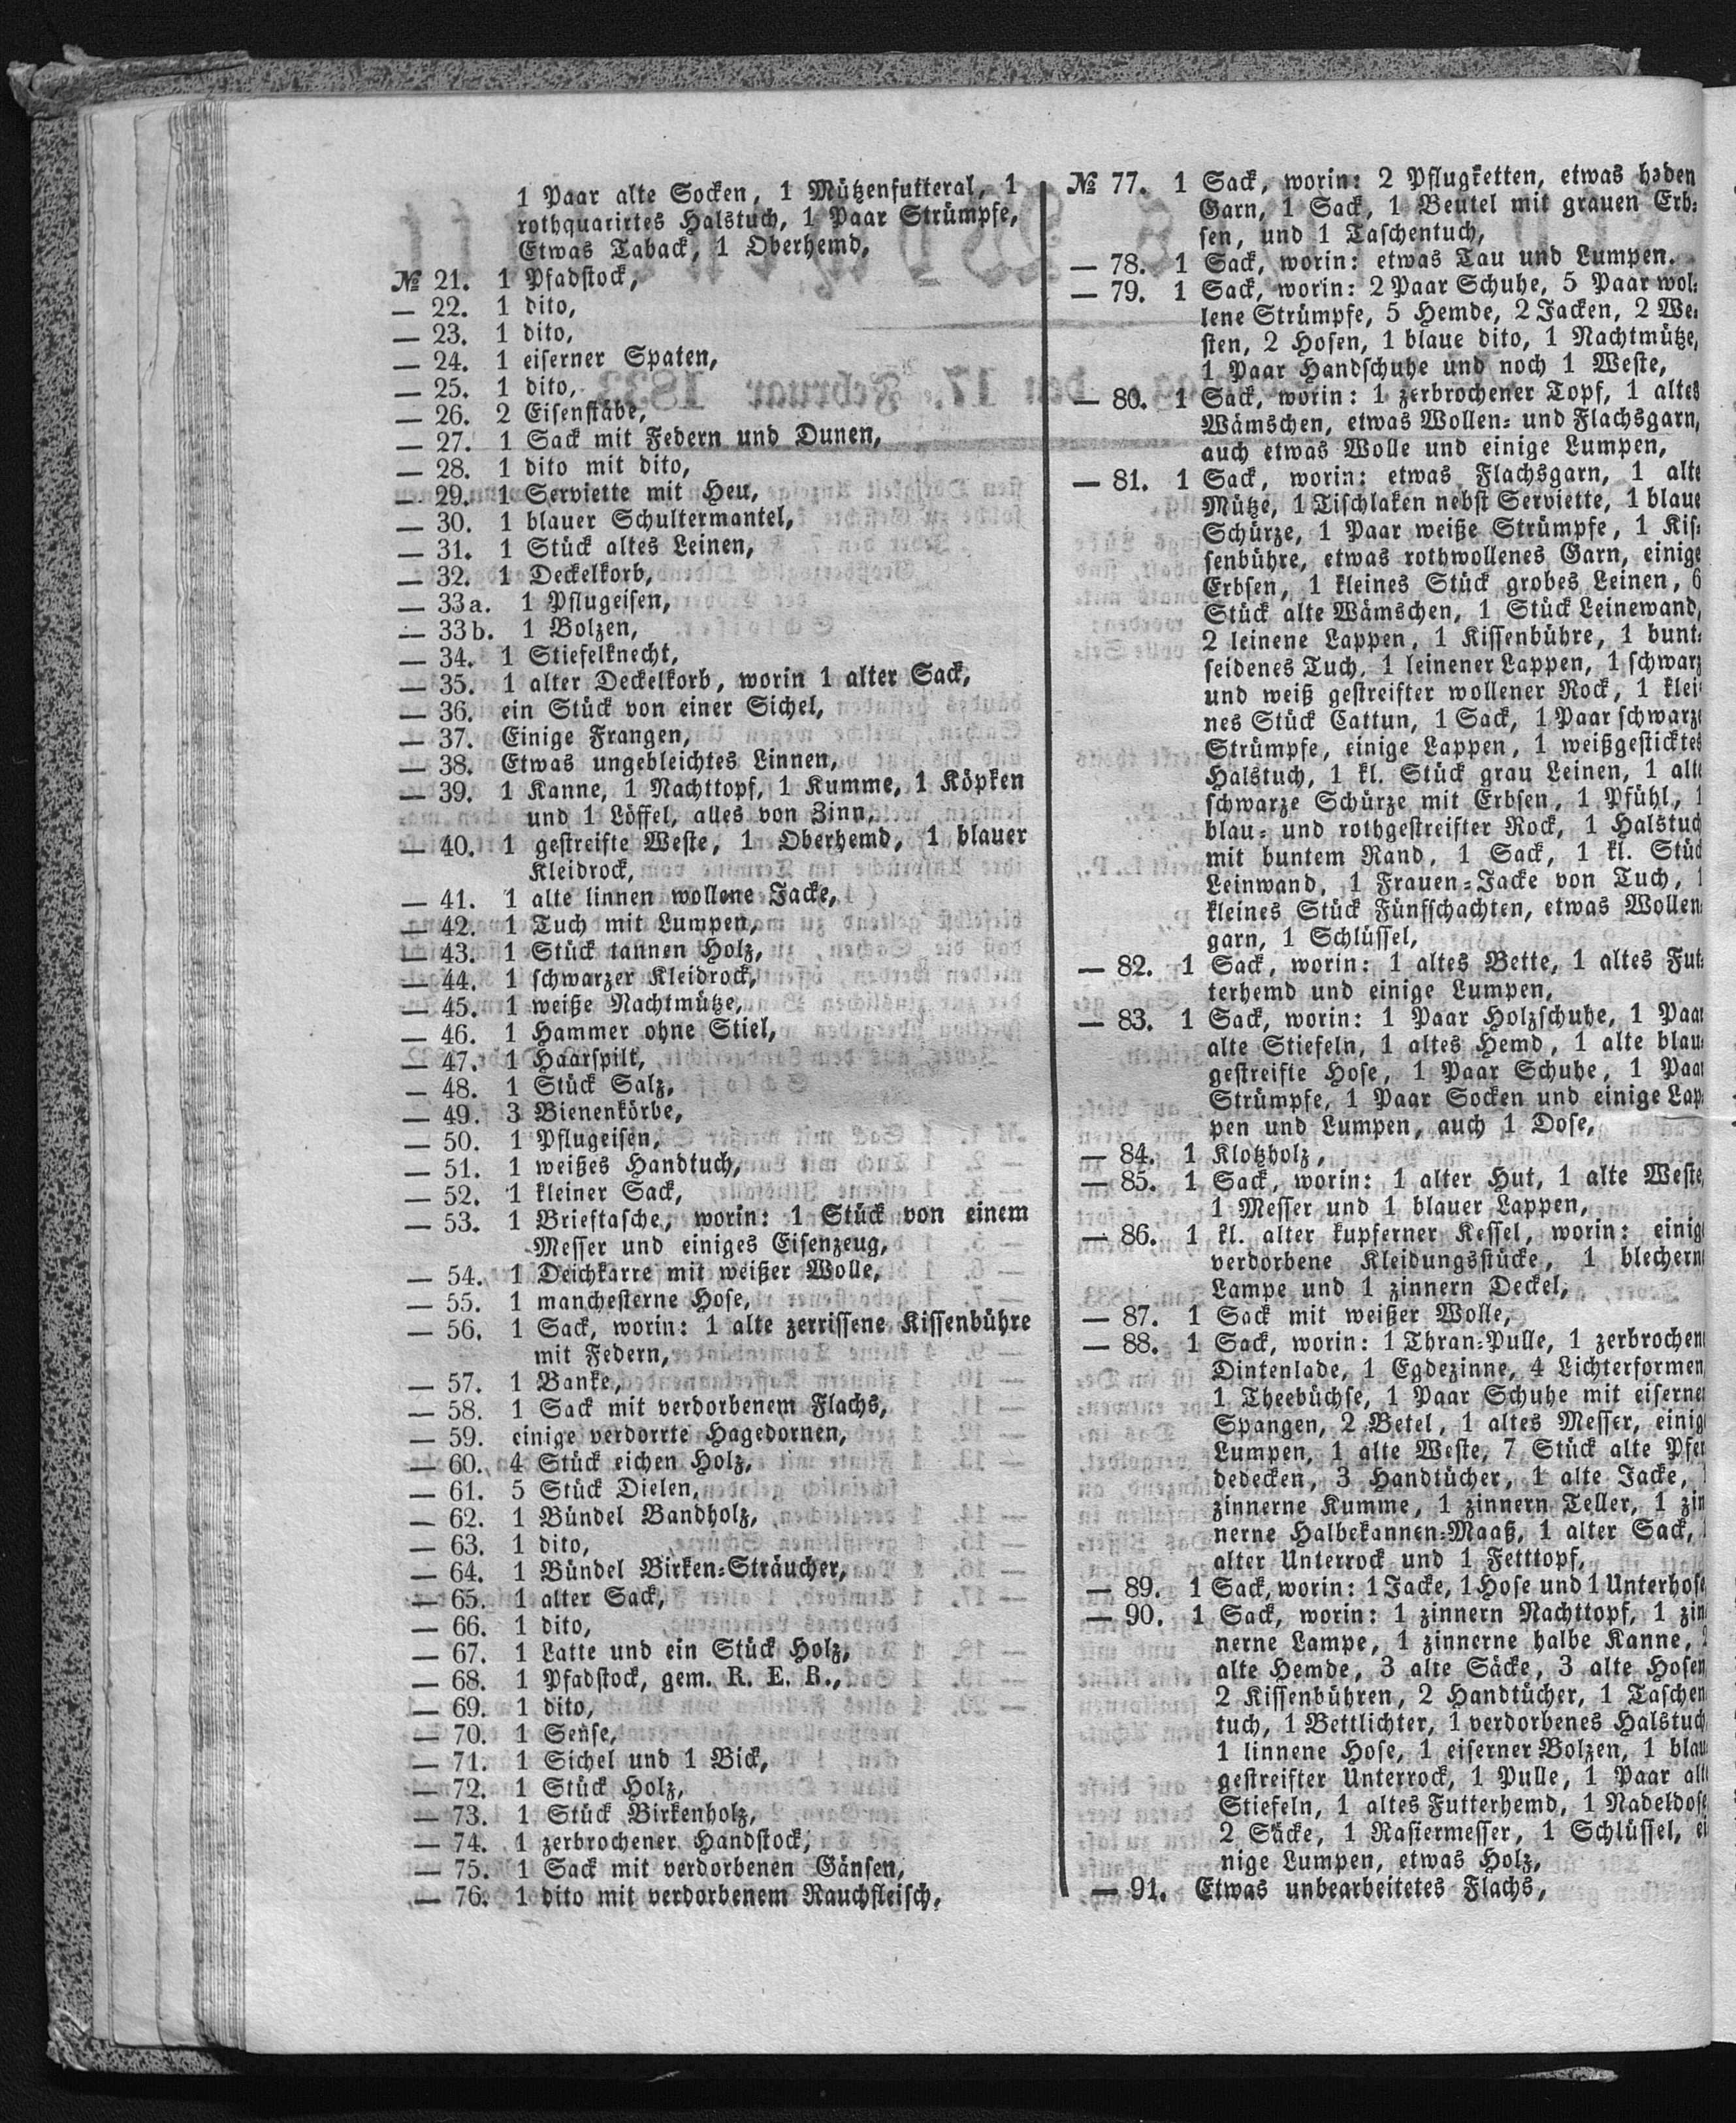 1 Paar alte Socken, 1 Mützenfutteral, 1
rothquarirtes Halstuch, 1 Paar Strümpfe,
Etwas Taback, 1 Oberhemd,
№ 21. 1 Pfadstock,
— 22. 1 dito,
— 23. 1 dito,
— 24. 1 eiserner Spaten,
— 25. 1 dito,
— 26. 2 Eisenstäbe,
— 27. 1 Sack mit Federn und Dunen,
— 28. 1 dito mit dito,
— 29. 1 Serviette mit Heu,
— 30. 1 blauer Schultermantel,
— 31. 1 Stück altes Leinen,
— 32. 1 Deckelkorb,
— 33a. 1 Pflugeisen,
— 33b. 1 Bolzen,
— 34. 1 Stiefelknecht,
— 35. 1 alter Deckelkorb, worin 1 alter Sack,
— 36. ein Stück von einer Sichel,
— 37. Einige Frangen,
— 38. Etwas ungebleichtes Linnen,
— 39. 1 Kanne, 1 Nachttopf, 1 Kumme, 1 Köpken
und 1 Löffel, alles von Zinn,
— 40. 1 gestreifte Weste, 1 Oberhemd, 1 blauer
Kleidrock,
— 41. 1 alte linnen wollene Jacke,
— 42. 1 Tuch mit Lumpen,
— 43. 1 Stück tannen Holz,
— 44. 1 schwarzer Kleidrock,
— 45. 1 weiße Nachtmütze,
— 46. 1 Hammer ohne Stiel,
— 47. 1 Haarspilt,
— 48. 1 Stück Salz,
— 49. 3 Bienenkörbe,
— 50. 1 Pflugeisen,
— 51. 1 weißes Handtuch,
— 52. 1 kleiner Sack,
— 53. 1 Brieftasche, worin: 1 Stück von einem
Messer und einiges Eisenzeug,
— 54. 1 Deichkarre mit weißer Wolle,
— 55. 1 manchesterne Hose,
— 56. 1 Sack, worin: 1 alte zerrissene Kissenbühre
mit Federn,
— 57. 1 Banke,
— 58. 1 Sack mit verdorbenem Flachs,
— 59. einige verdorrte Hagedornen,
— 60. 4 Stück eichen Holz,
— 61. 5 Stück Dielen,
— 62. 1 Bündel Bandholz,
— 63. 1 dito,
— 64. 1 Bündel Birken-Sträucher,
— 65. 1 alter Sack,
— 66. 1 dito,
— 67. 1 Latte und ein Stück Holz,
— 68. 1 Pfadstock, gem. R. E. B.,
— 69. 1 dito,
— 70. 1 Sense,
— 71. 1 Sichel und 1 Bick,
— 72. 1 Stück Holz,
— 73. 1 Stück Birkenholz,
— 74. 1 zerbrochener Handstock,
— 75. 1 Sack mit verdorbenen Gänsen,
— 76. 1 dito mit verdorbenem Rauchfleisch,
№ 77. 1 Sack, worin: 2 Pflugketten, etwas heden
Garn, 1 Sack, 1 Beutel mit grauen Erb-
sen, und 1 Taschentuch,
— 78. 1 Sack, worin: etwas Tau und Lumpen.
— 79. 1 Sack, worin: 2 Paar Schuhe, 5 Paar wol-
lene Strümpfe, 5 Hemde, 2 Jacken, 2 We-
sten, 2 Hosen, 1 blaue dito, 1 Nachtmütze,
1 Paar Handschuhe und noch 1 Weste,
— 80. 1 Sack, worin: 1 zerbrochener Topf, 1 altes
Wämschen, etwas Wollen- und Flachsgarn,
auch etwas Wolle und einige Lumpen,
— 81. 1 Sack, worin: etwas Flachsgarn, 1 alte
Mütze, 1 Tischlaken nebst Serviette, 1 blaue
Schürze, 1 Paar weiße Strümpfe, 1 Kis-
senbühre, etwas rothwollenes Garn, einige
Erbsen, 1 kleines Stück grobes Leinen, 6
Stück alte Wämschen, 1 Stück Leinewand,
2 leinene Lappen, 1 Kissenbühre, 1 bunt-
seidenes Tuch, 1 leinener Lappen, 1 schwarz
und weiß gestreifter wollener Rock, 1 klei-
nes Stück Cattun, 1 Sack, 1 Paar schwarze
Strümpfe, einige Lappen, 1 weißgesticktes
Halstuch, 1 kl. Stück grau Leinen, 1 alte
schwarze Schürze mit Erbsen, 1 Pfühl, 1
blau- und rothgestreifter Rock, 1 Halstuch
mit buntem Rand, 1 Sack, 1 kl. Stück
Leinwand, 1 Frauen-Jacke von Tuch, 1
kleines Stück Fünfschachten, etwas Wollen-
garn, 1 Schlüssel,
— 82. 1 Sack, worin: 1 altes Bette, 1 altes Fut-
terhemd und einige Lumpen,
— 83. 1 Sack, worin: 1 Paar Holzschuhe, 1 Paar
alte Stiefeln, 1 altes Hemd, 1 alte blau-
gestreifte Hose, 1 Paar Schuhe, 1 Paar
Strümpfe, 1 Paar Socken und einige Lap-
pen und Lumpen, auch 1 Dose,
— 84. 1 Klotzholz,
— 85. 1 Sack, worin: 1 alter Hut, 1 alte Weste,
1 Messer und 1 blauer Lappen,
— 86. 1 kl. alter kupferner Kessel, worin: einige
verdorbene Kleidungsstücke, 1 blecherne
Lampe und 1 zinnern Deckel,
— 87. 1 Sack mit weißer Wolle,
— 88. 1 Sack, worin: 1 Thran-Pulle, 1 zerbrochene
Dintenlade, 1 Egdezinne, 4 Lichterformen,
1 Theebüchse, 1 Paar Schuhe mit eisernen
Spangen, 2 Betel, 1 altes Messer, einige
Lumpen, 1 alte Weste, 7 Stück alte Pfer-
dedecken, 3 Handtücher, 1 alte Jacke,
zinnerne Kumme, 1 zinnern Teller, 1 zin
nerne Halbekannen-Maaß, 1 alter Sack,
alter Unterrock und 1 Fetttopf,
— 89. 1 Sack, worin: 1 Jacke, 1 Hose und 1 Unterhose
— 90. 1 Sack, worin: 1 zinnern Nachttopf, 1 zin
nerne Lampe, 1 zinnerne halbe Kanne, 2
alte Hemde, 3 alte Säcke, 3 alte Hosen
2 Kissenbühren, 2 Handtücher, 1 Taschen
tuch, 1 Bettlichter, 1 verdorbenes Halstuch
1 linnene Hose, 1 eiserner Bolzen, 1 blau
gestreifter Unterrock, 1 Pulle, 1 Paar alte
Stiefeln, 1 altes Futterhemd, 1 Nadeldose
2 Säcke, 1 Rasiermesser, 1 Schlüssel, ei
nige Lumpen, etwas Holz,
— 91. Etwas unbearbeitetes Flachs,